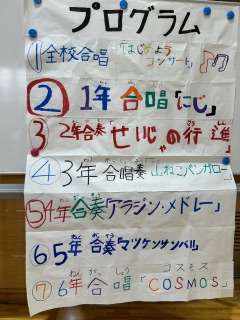 プログラム
①全校合唱 「はじめよう コンサート」
②1年 合唱「にじ」
③2年合奏「せいじゃの行進」
④3年 合唱奏「山ねこバンガロー」
⑤4年 合奏「アラジン・メドレー」
⑥5年 合奏「マツケンサンバⅡ」
⑦6年 合唱「COSMOS」
コスモス